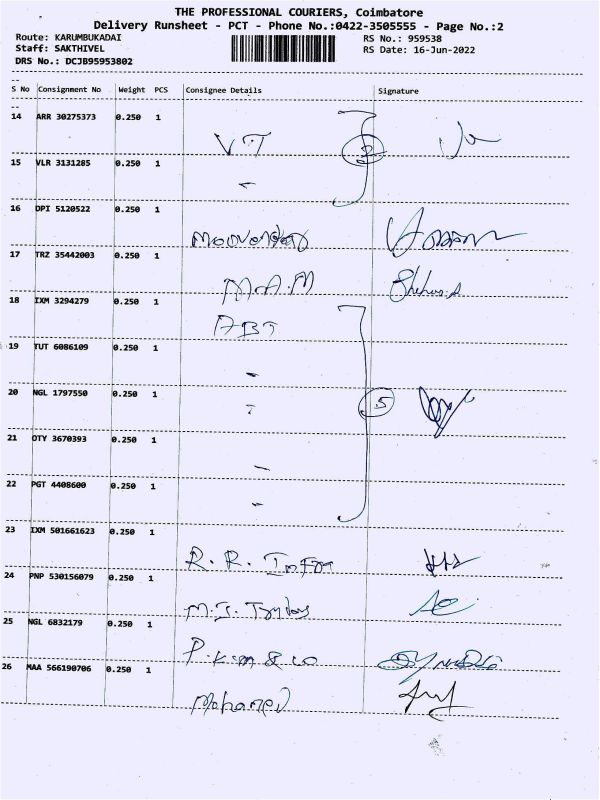 THE PROFESSIONAL COURIERS, Coimbatore
Delivery Runsheet - PCT - Phone No.:0422-3505555 - Page No.:2
Route: KARUMBUKADAI RS No.: 959538
Staff: SAKTHIVEL RS Date: 16-Jun-2022
DRS No.: DCJB95953802
S No Consignment No Weight PCS Consignee Details Signature
14 ARR 30275373 0.250 1
VT 2
15 VLR 3131285 0.250 1
16 DPI 5120522 0.250 1
17 TRZ 35442003 0.250 1
M.A.M
18 IXM 3294279 0.250 1
ABT
19 TUT 6086109 0.250 1
20 NGL 1797550 0.250 1
5
21 OTY 3670393 0.250 1
22 PGT 4408600 0.250 1
23 IXM 501661623 0.250 1
R. R. Infra
24 PNP 530156079 0.250 1
M.I.
25 NGL 6832179 0.250 1
& co
26 MAA 566190706 0.250 1